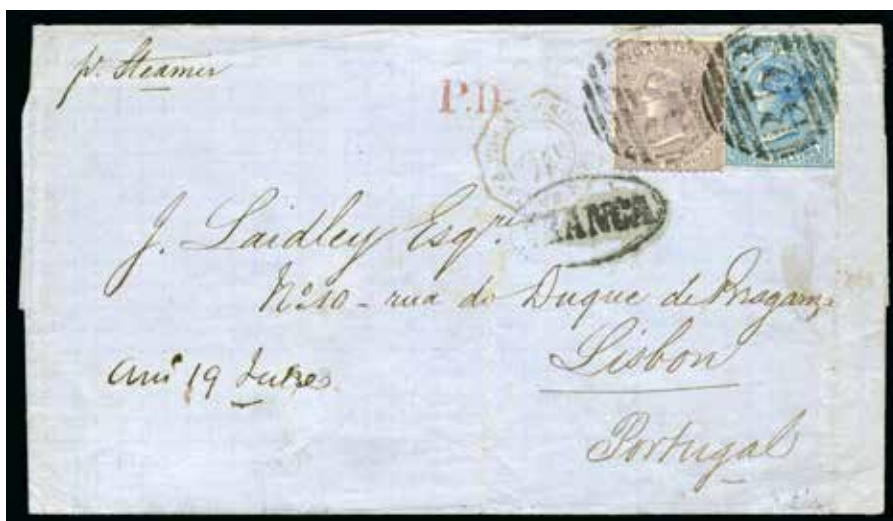 pr. Steamer
P.D.
FRANCA
J. Laidley Esqre
No 10 - rua do Duque de Braganza
Lisbon
19
Portugal